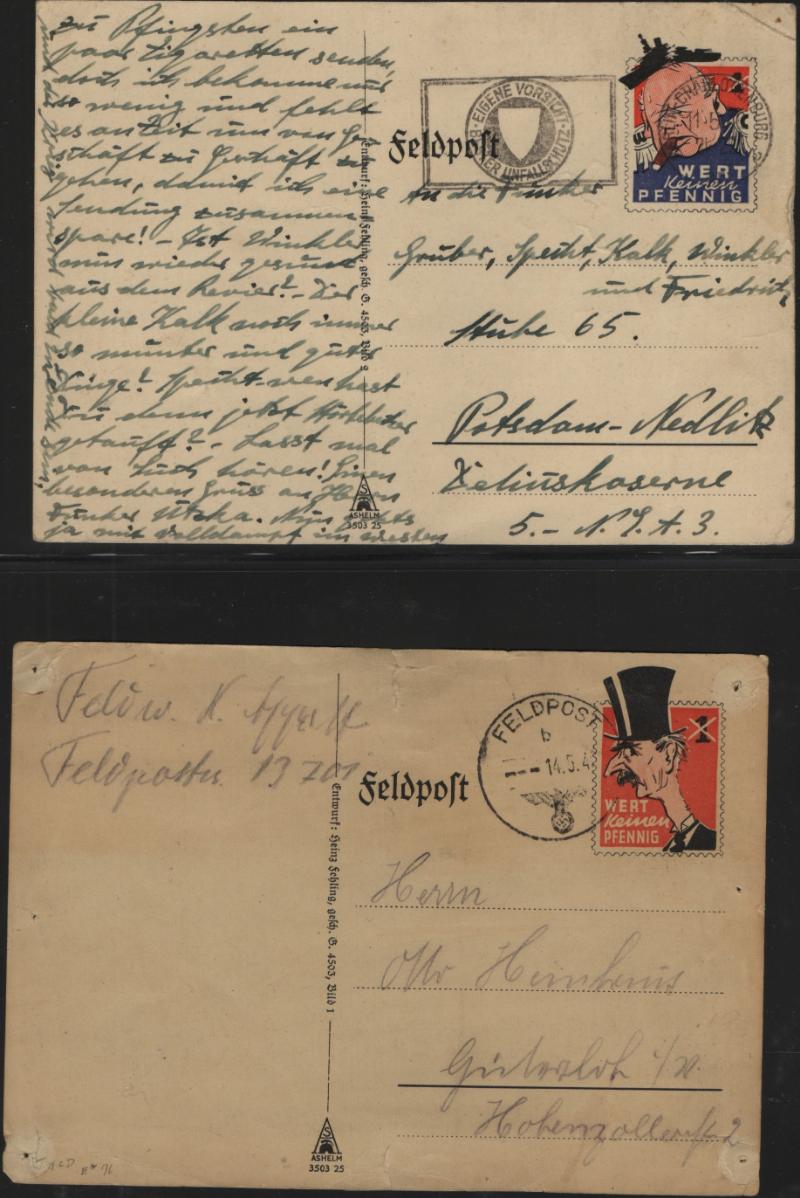 zu Pfingsten ein
paar Zigaretten senden,
doch ich bekomme nur
so wenig und fehlt
es an Zeit um von Ge-
schäft zu Geschäft zu
gehen, damit ich eine
Sendung zusammen
spare! - Ist Winkler
nun wieder gesund
aus dem Revier? - Der
kleine Kalk noch immer
so munter und guter
Dinge? Specht - wen hast
Du denn jetzt
getauft? - Lasst mal
von Euch hören! Einen
besonderen Gruss an Herrn
Funker Utzka. Nun gehts
ja mit Volldampf im Westen
und der Krieg wird bald zu Ende sein!
Entwurf: Heinz Fehling, gesch. G. 4503, Bild 2
ASHELM
3503 25
EIGENE VORSICHT
UNFALLSCHUTZ
Feldpost
1
WERT
keinen
PFENNIG
An die Funker
Gruber, Specht, Kalk, Winkler
und Friedrich
Stube 65.
Potsdam-Nedlitz
Kaserne
5. - N. I. A. 3.
Feldw. K.
Feldpostnr. 13701
Entwurf: Heinz Fehling, gesch. G. 4503, Bild 1
ASHELM
3503 25
Feldpost
FELDPOST
b
14.5.4
1
WERT
keinen
PFENNIG
Herrn
Otto
Gütersloh i/W.
Hohenzollernstr. 2